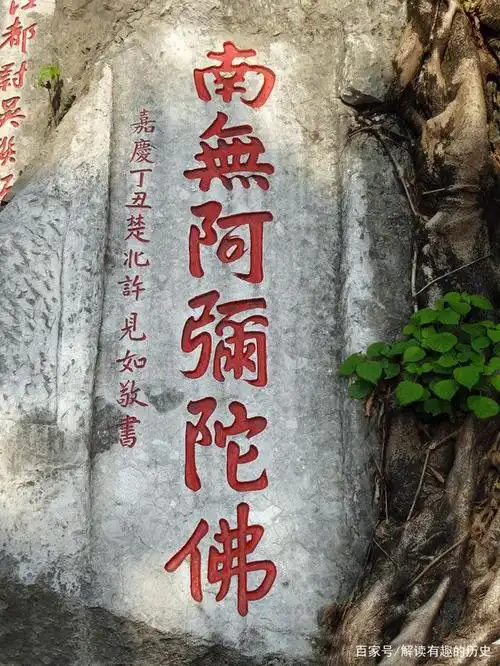 南無阿彌陀佛
嘉慶丁丑楚北許見如敬書
江都尉吳
百家号/解读有趣的历史